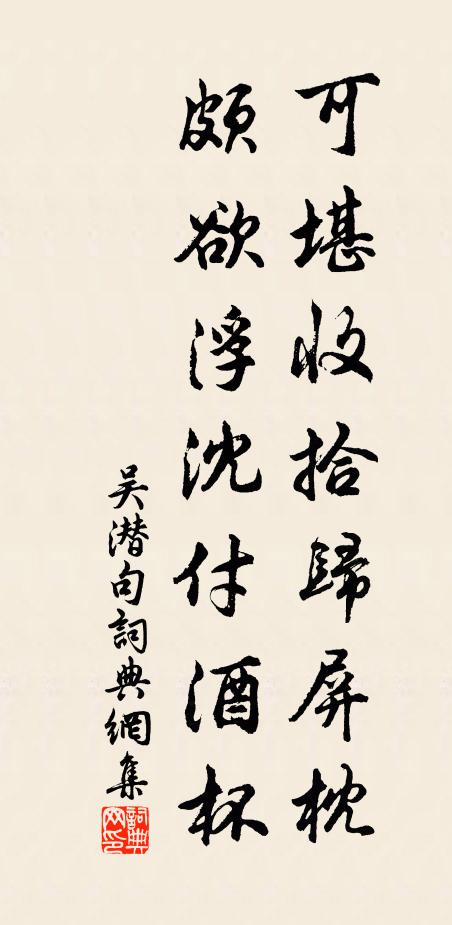 可堪收拾歸屏枕
頗欲浮沈付酒杯
吴潛句詞典網集
詞典网印